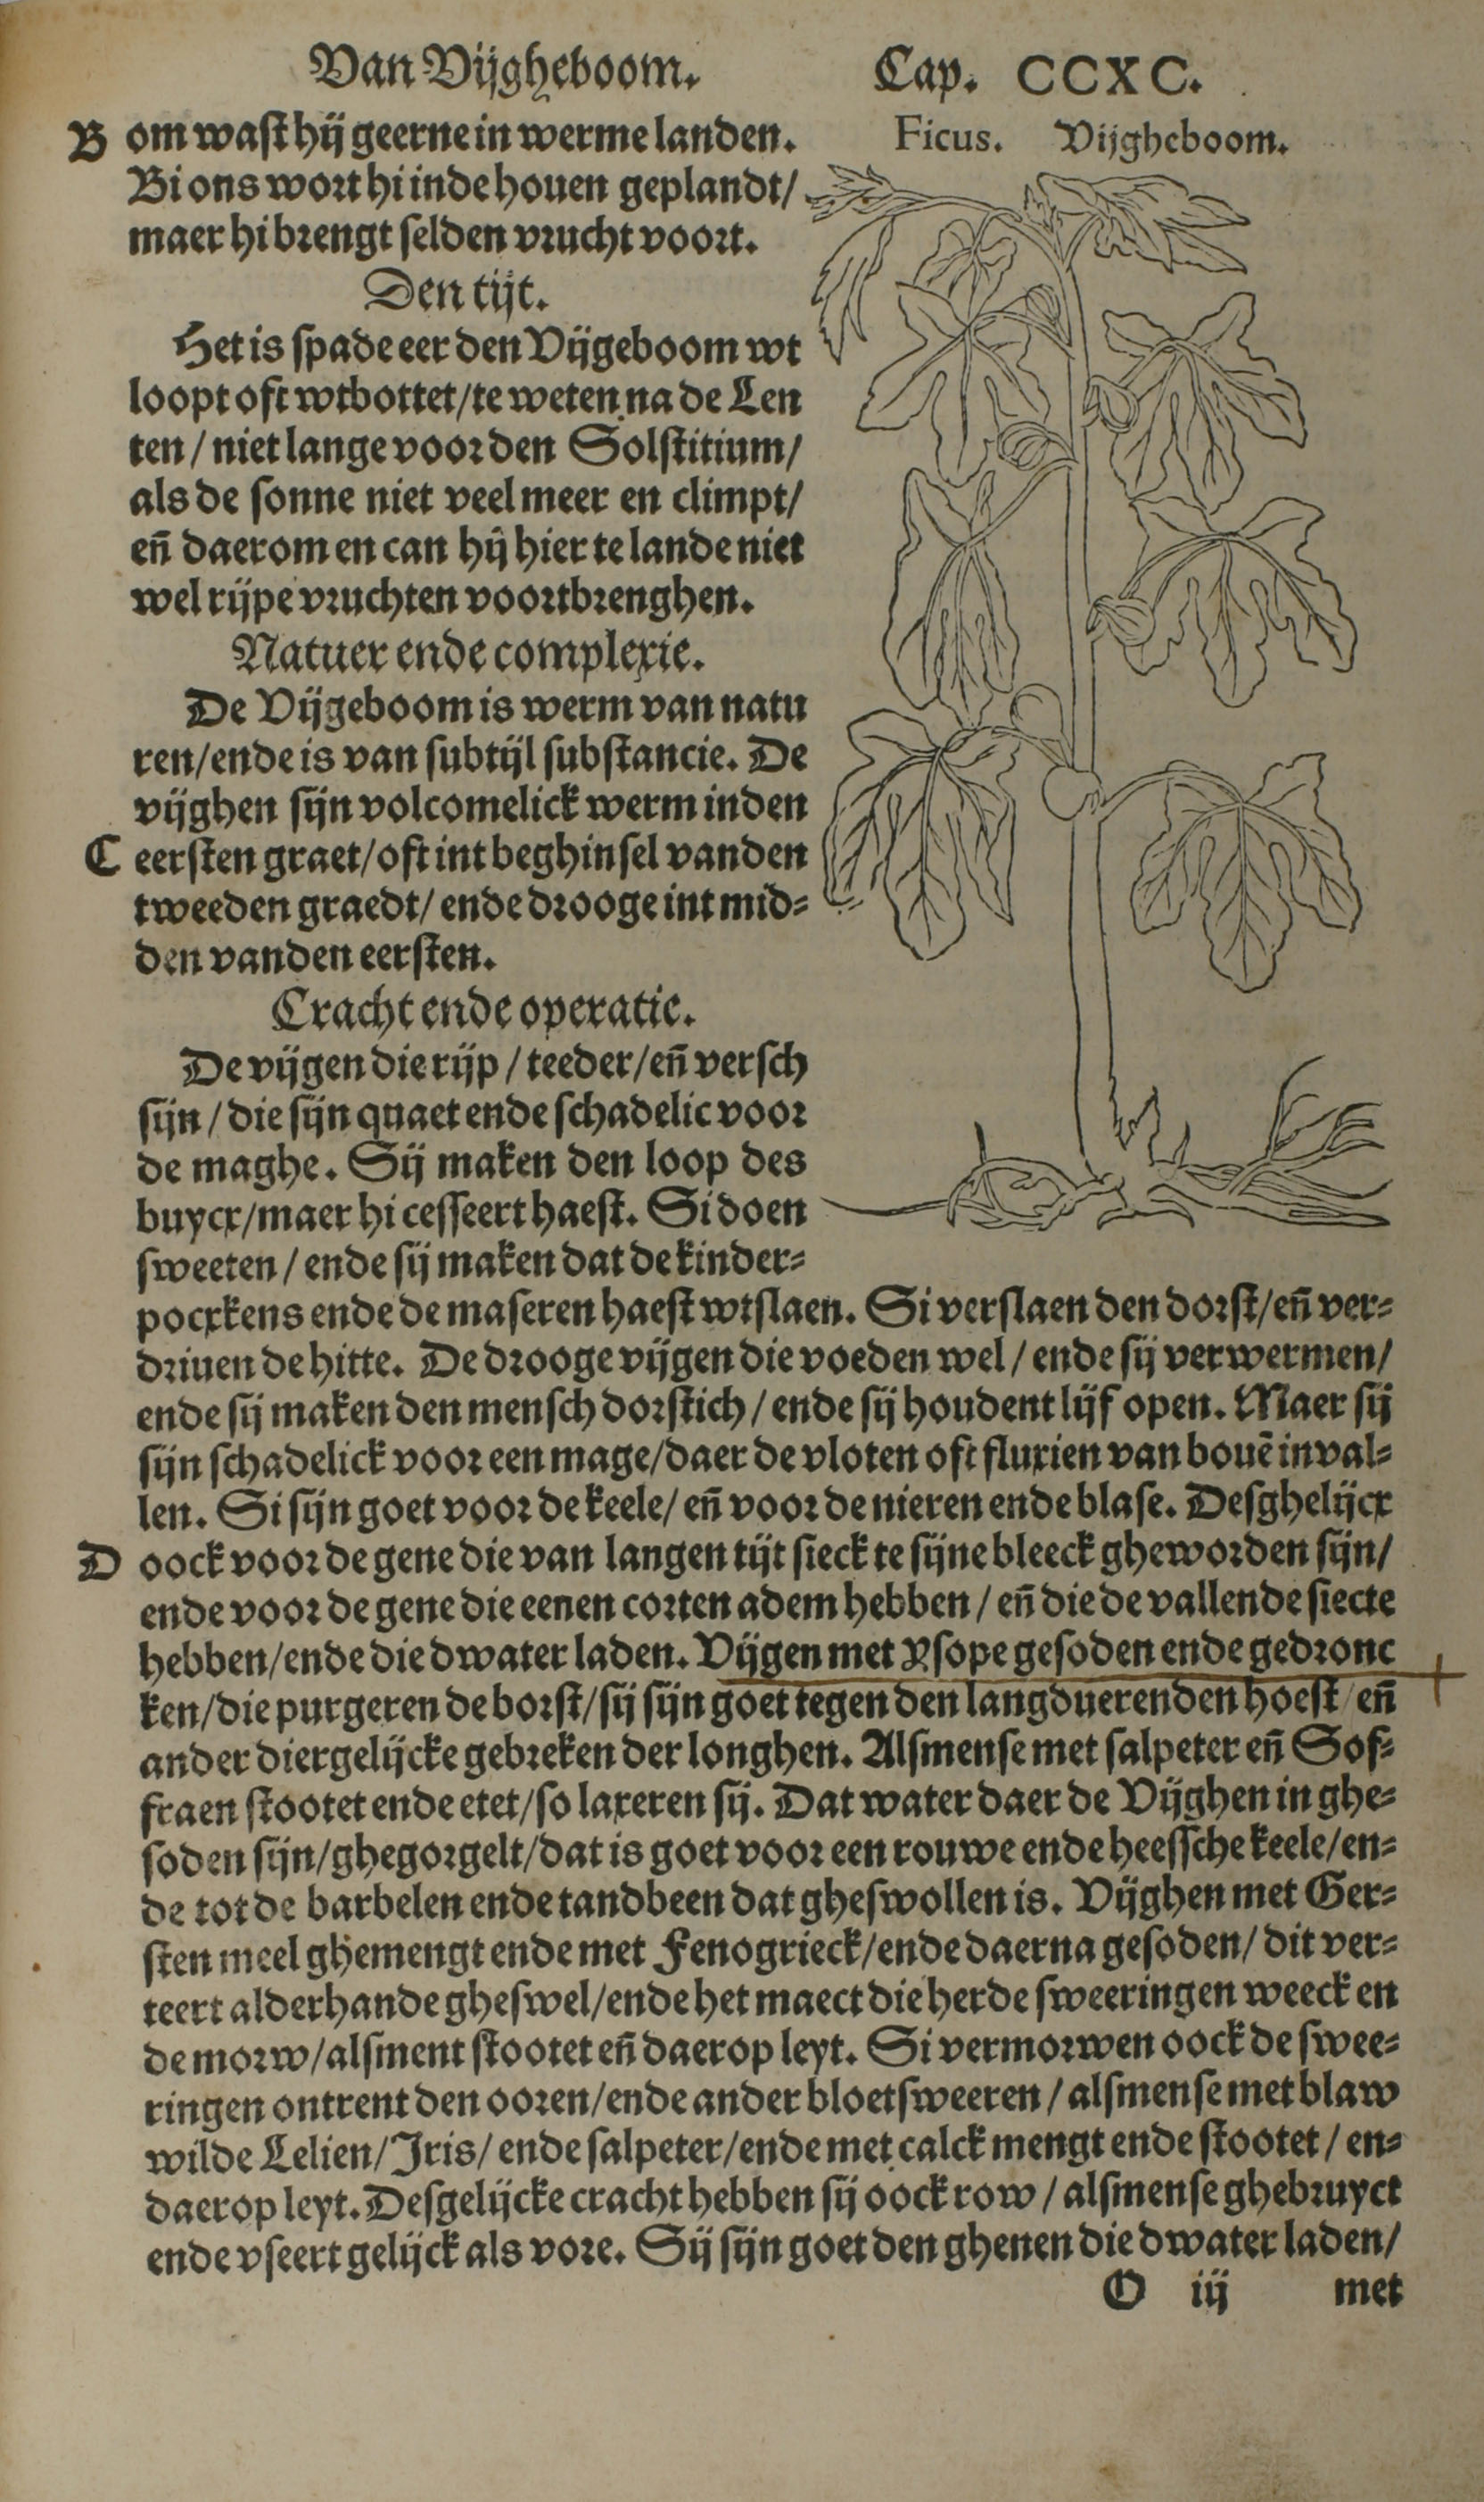 Van Vijgheboom. Cap. CCXC.
Ficus. Vijgheboom.
B om wast hij geerne in werme landen.
Bi ons wort hi in de houen geplandt/
maer hi brengt selden vrucht voort.
Den tijt.
Het is spade eer den Vijgeboom wt
loopt oft wtbottet/te weten na de Len
ten/niet lange voor den Solstitium/
als de sonne niet veel meer en climpt/
eñ daerom en can hij hier te lande niet
wel rijpe vruchten voortbrenghen.
Natuer ende complexie.
De Vijgeboom is werm van natu
ren/ende is van subtijl substancie. De
vijghen sijn volcomelick werm inden
C eersten graet/oft int beghinsel vanden
tweeden graedt/ende drooge int mid-
den vanden eersten.
Cracht ende operatie.
De vijgen die rijp/teeder/eñ versch
sijn/die sijn quaet ende schadelic voor
de maghe. Sij maken den loop des
buycx/maer hi cesseert haest. Si doen
sweeten/ende sij maken dat de kinder-
pocxkens ende de maseren haest wtslaen. Si verslaen den dorst/eñ ver-
driuen de hitte. De drooge vijgen die voeden wel/ende sij verwermen/
ende sij maken den mensch dorstich/ende sij houdent lijf open. Maer sij
sijn schadelick voor een mage/daer de vloten oft fluxien van bouē in val-
len. Si sijn goet voor de keele/eñ voor de nieren ende blase. Desghelijcx
D oock voor de gene die van langen tijt sieck te sijne bleeck gheworden sijn/
ende voor de gene die eenen corten adem hebben/eñ die de vallende siecte
hebben/ende die dwater laden. Vijgen met Ysope gesoden ende gedronc
ken/die purgeren de borst/sij sijn goet tegen den langduerenden hoest/eñ
ander diergelijcke gebreken der longhen. Alsmense met salpeter eñ Sof-
fraen stootet ende etet/so laxeren sij. Dat water daer de Vijghen in ghe-
soden sijn/ghegorgelt/dat is goet voor een rouwe ende heessche keele/en-
de tot de barbelen ende tandbeen dat gheswollen is. Vijghen met Ger-
sten meel ghemengt ende met Fenogrieck/ende daerna gesoden/dit ver-
teert alderhande gheswel/ende het maect die herde sweeringen weeck en
de morw/alsment stootet eñ daerop leyt. Si vermorwen oock de swee-
ringen ontrent den ooren/ende ander bloetsweeren/alsmense met blaw
wilde Lelien/Iris/ende salpeter/ende met calck mengt ende stootet/en-
daerop leyt. Desgelijcke cracht hebben sij oock row/alsmense ghebruyct
ende vseert gelijck als vore. Sij sijn goet den ghenen die dwater laden/
O iij met